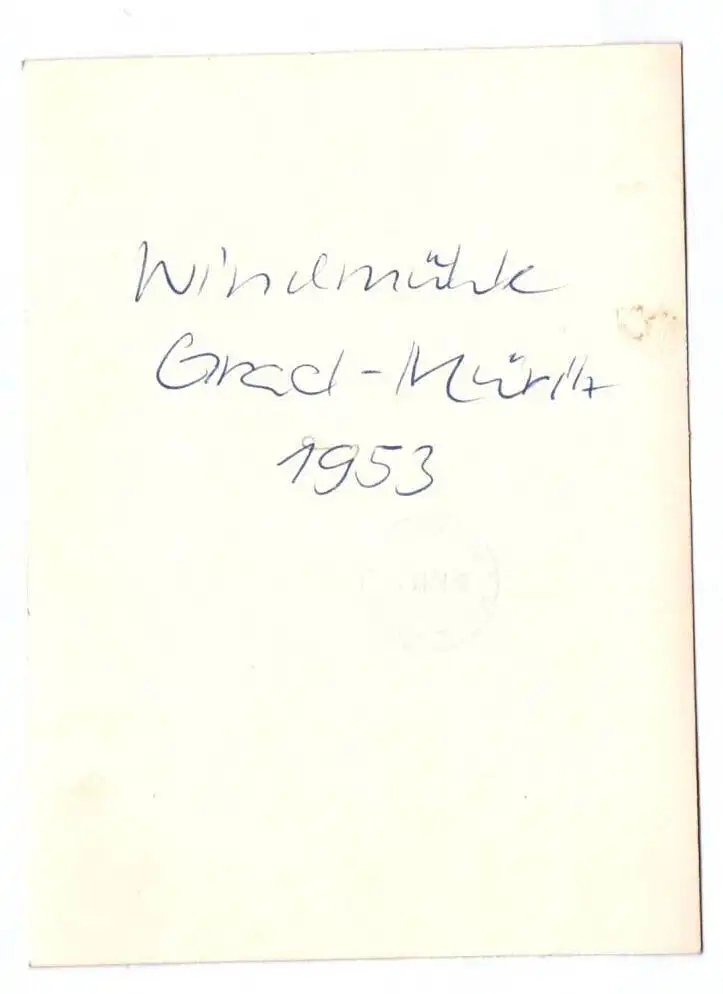 Windmühle
Grad-Müritz
1953